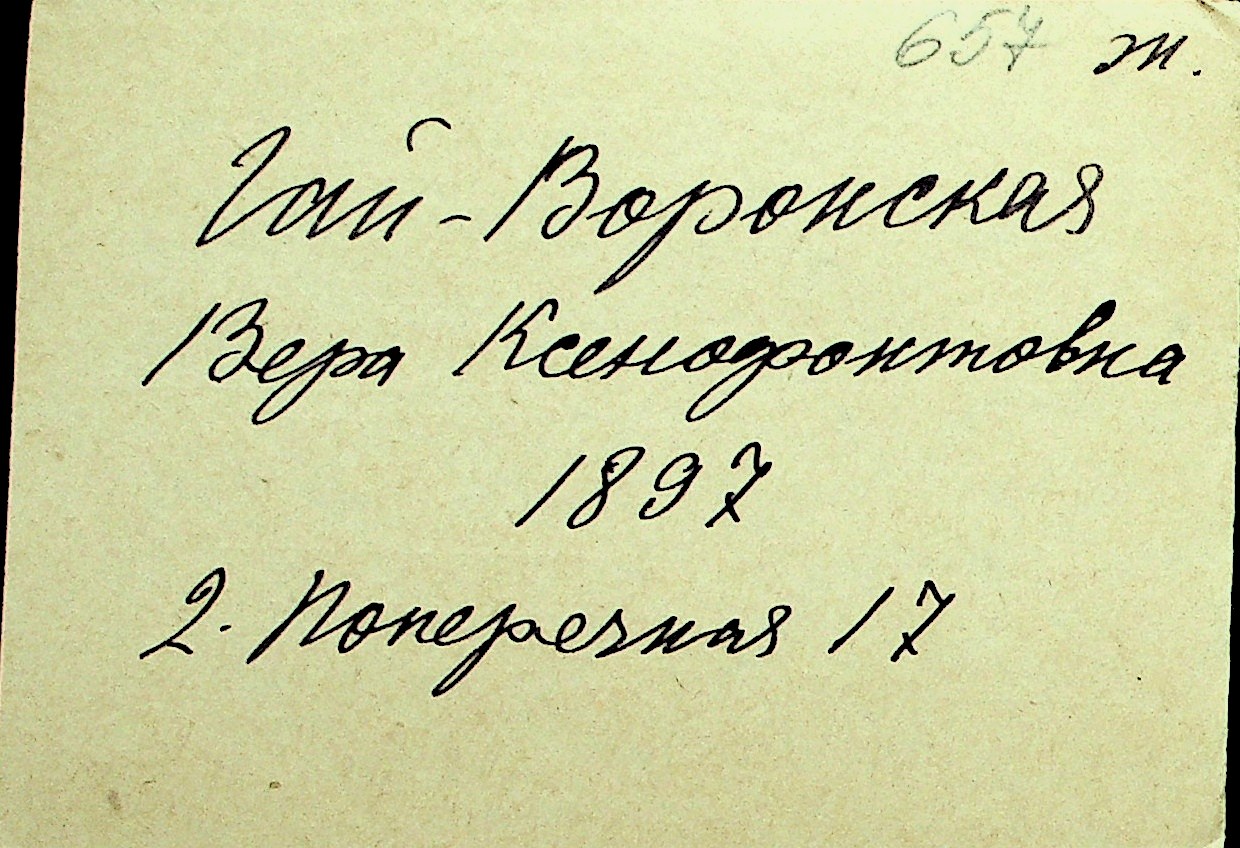 657 ж.
Гай-Воронская
Вера Ксенофонтовна
1897
2. Поперечная 17